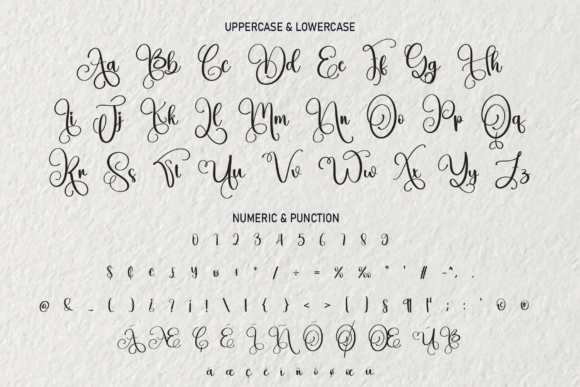 UPPERCASE & LOWERCASE
Aa Bb Cc Dd Ee Ff Gg Hh
Ii Jj Kk Ll Mm Nn Oo Pp Qq
Rr Ss Tt Uu Vv Ww Xx Yy Zz
NUMERIC & PUNCTION
0 1 2 3 4 5 6 7 8 9
$ ¢ £ ƒ ¥ ¤ + * / ÷ = % ‰ " ' // - ^ , .
@ & _ ( ) ¿ ? ¡ ! \ | { } < > [ ] § ¶ : ; '
Æ Ç Ñ Ø Œ
æ ç ñ ø œ